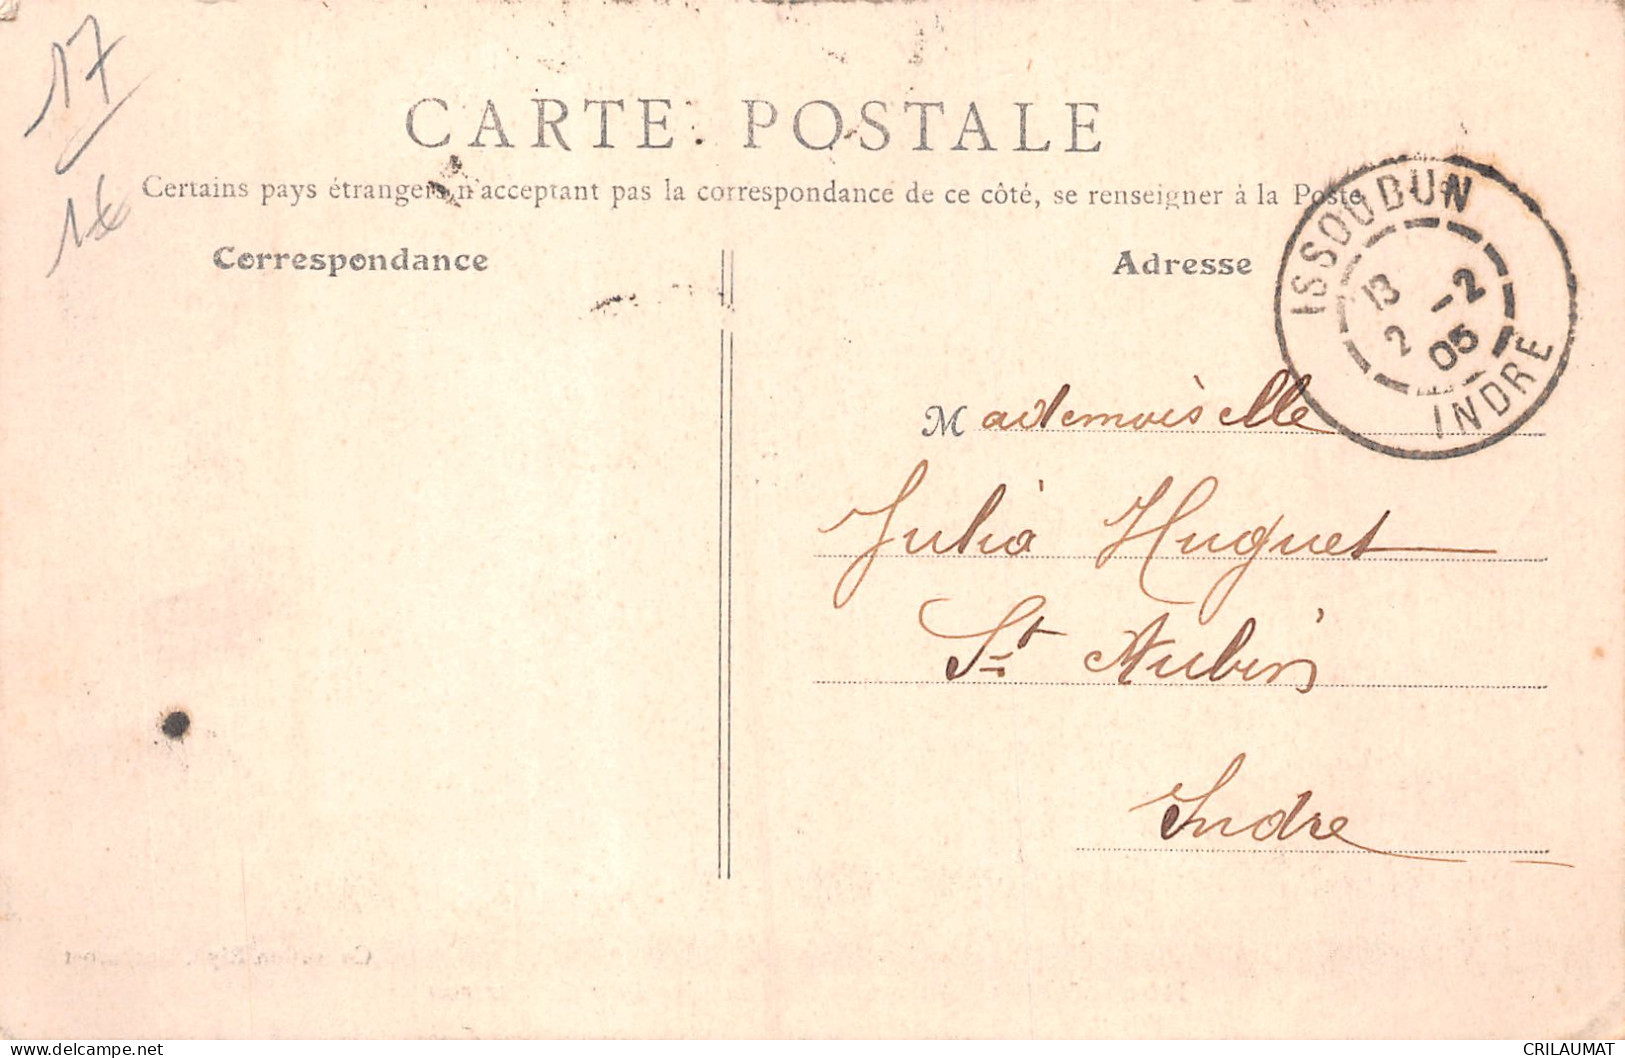 17
CARTE POSTALE
Certains pays étrangers n'acceptant pas la correspondance de ce côté, se renseigner à la Poste
Correspondance
Adresse
ISSOUDUN
13 -2
2 05
INDRE
Mademoiselle
Julia Huguet
St Aubin
Indre
www.delcampe.net
CRILAUMAT